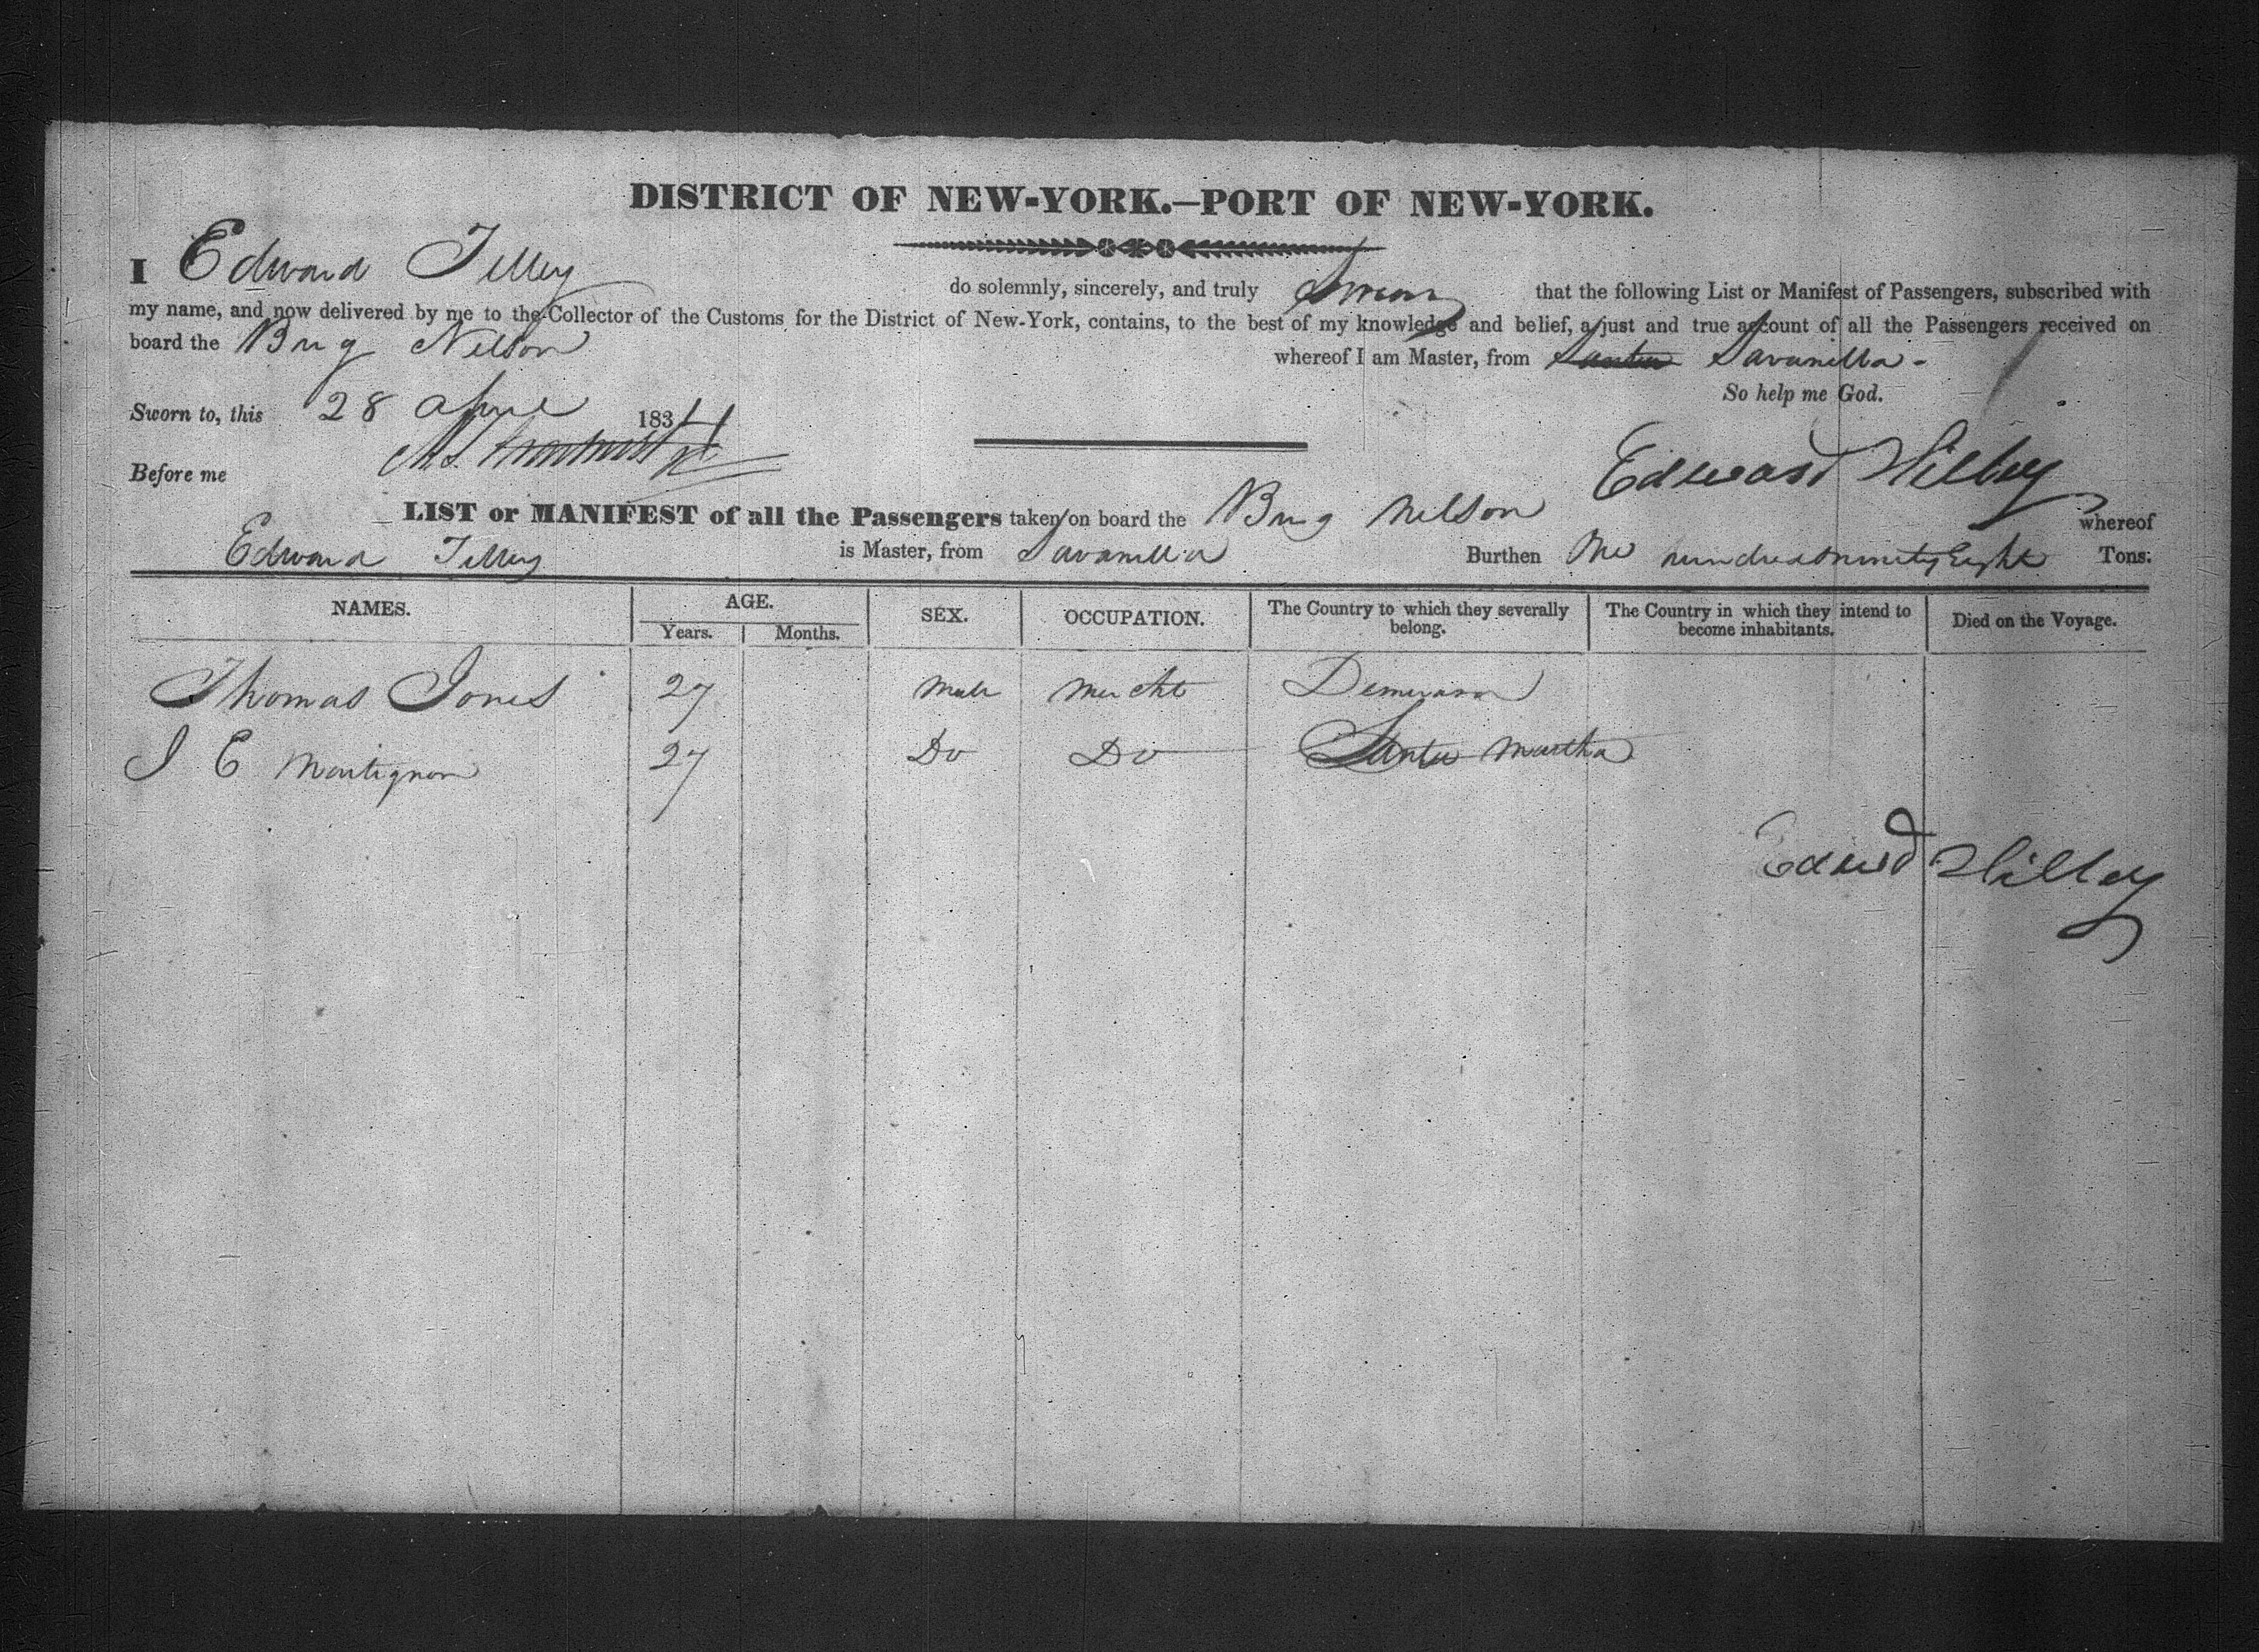 DISTRICT OF NEW-YORK.—PORT OF NEW-YORK.
I Edward Tilley do solemnly, sincerely, and truly Swear that the following List or Manifest of Passengers, subscribed with
my name, and now delivered by me to the Collector of the Customs for the District of New-York, contains, to the best of my knowledge and belief, a just and true account of all the Passengers received on
board the Brig Nelson whereof I am Master, from Santa Savanilla -
So help me God.
Sworn to, this 28 April 1834
Before me
Edward Tilley
LIST or MANIFEST of all the Passengers taken on board the Brig Nelson whereof
Edward Tilley is Master, from Savanilla Burthen One hundred ninety Eight Tons.
NAMES. AGE. SEX. OCCUPATION. The Country to which they severally belong. The Country in which they intend to become inhabitants. Died on the Voyage.
Years. Months.
Thomas Jones 27 Male Mercht Demerara
J E Martignon 27 Do Do Santa Martha
Edward Tilley